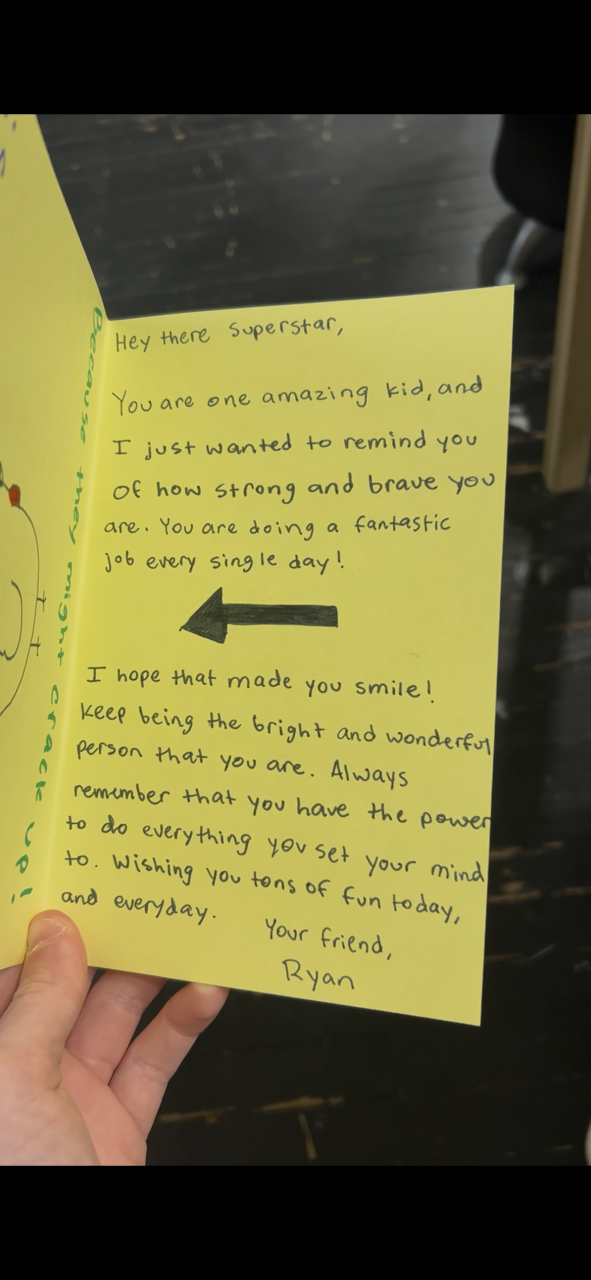 Because they might crack up!
Hey there Superstar,
You are one amazing kid, and
I just wanted to remind you
of how strong and brave you
are. You are doing a fantastic
job every single day!
I hope that made you smile!
Keep being the bright and wonderful
person that you are. Always
remember that you have the power
to do everything you set your mind
to. Wishing you tons of fun today,
and everyday.
Your friend,
Ryan